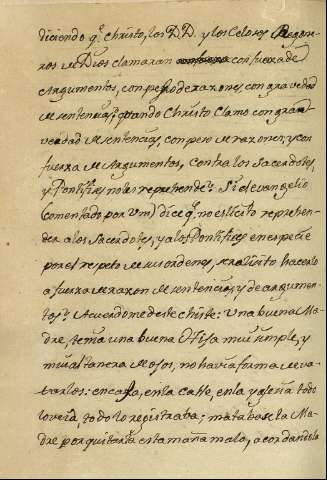 diciendo q.e Christo, los D.D. y los Celosos Regone-
ros de Dios clamaran con fuerza de
Argumentos, con peso de razones, con gravedad
de sentencias; quando Christo Clamo con gran
verdad de sentencias, con peso de razones, y con
fuerza de Argumentos, contra los Sacerdotes,
y Pontifices no los reprehende? Si el evangelio
(comentado por Vm) dice q.e no es licito reprehen-
der a los Sacerdotes, y a los Pontifices en especie
por el respeto de sus ordenes, sera licito hacerlo
a fuerza de razon de sentencias, y de argumen-
tos? Acuerdome de este chiste: Una buena Ma-
dre, tenia una buena Hija mui simple, y
mui altanera de ojos, no havia forma de
en casa, en la calle, en la yglesia todo
lo veia, todo lo registraba; matabase la Ma-
dre por quitarle esta maña mala, acordandola